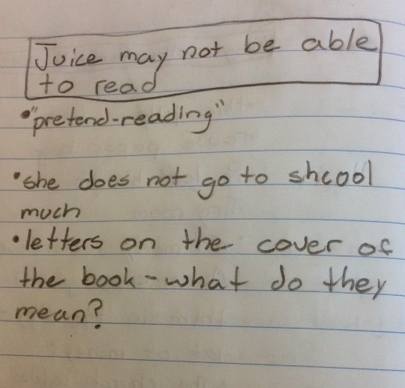 Juice may not be able
to read
•"pretend-reading"
•she does not go to shcool
much
•letters on the cover of
the book-what do they
mean?